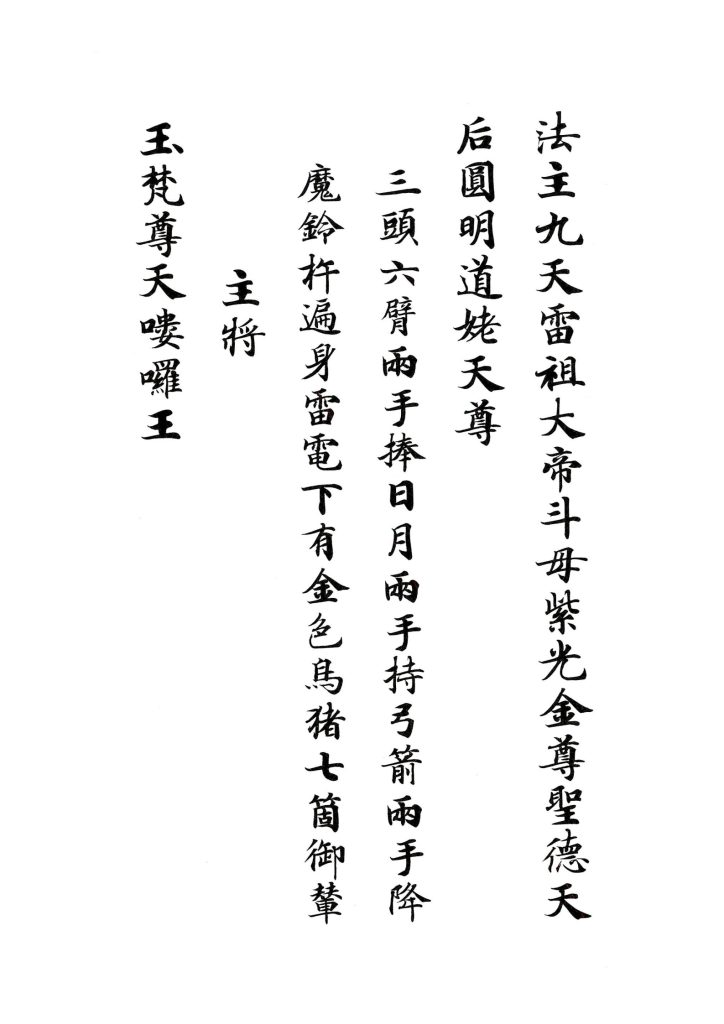 法主九天雷祖大帝斗母紫光金尊聖德天
后圓明道姥天尊
三頭六臂兩手捧日月兩手持弓箭兩手降
魔鈴杵遍身雷電下有金色烏猪七箇御輦
主將
玉梵尊天嘍囉王